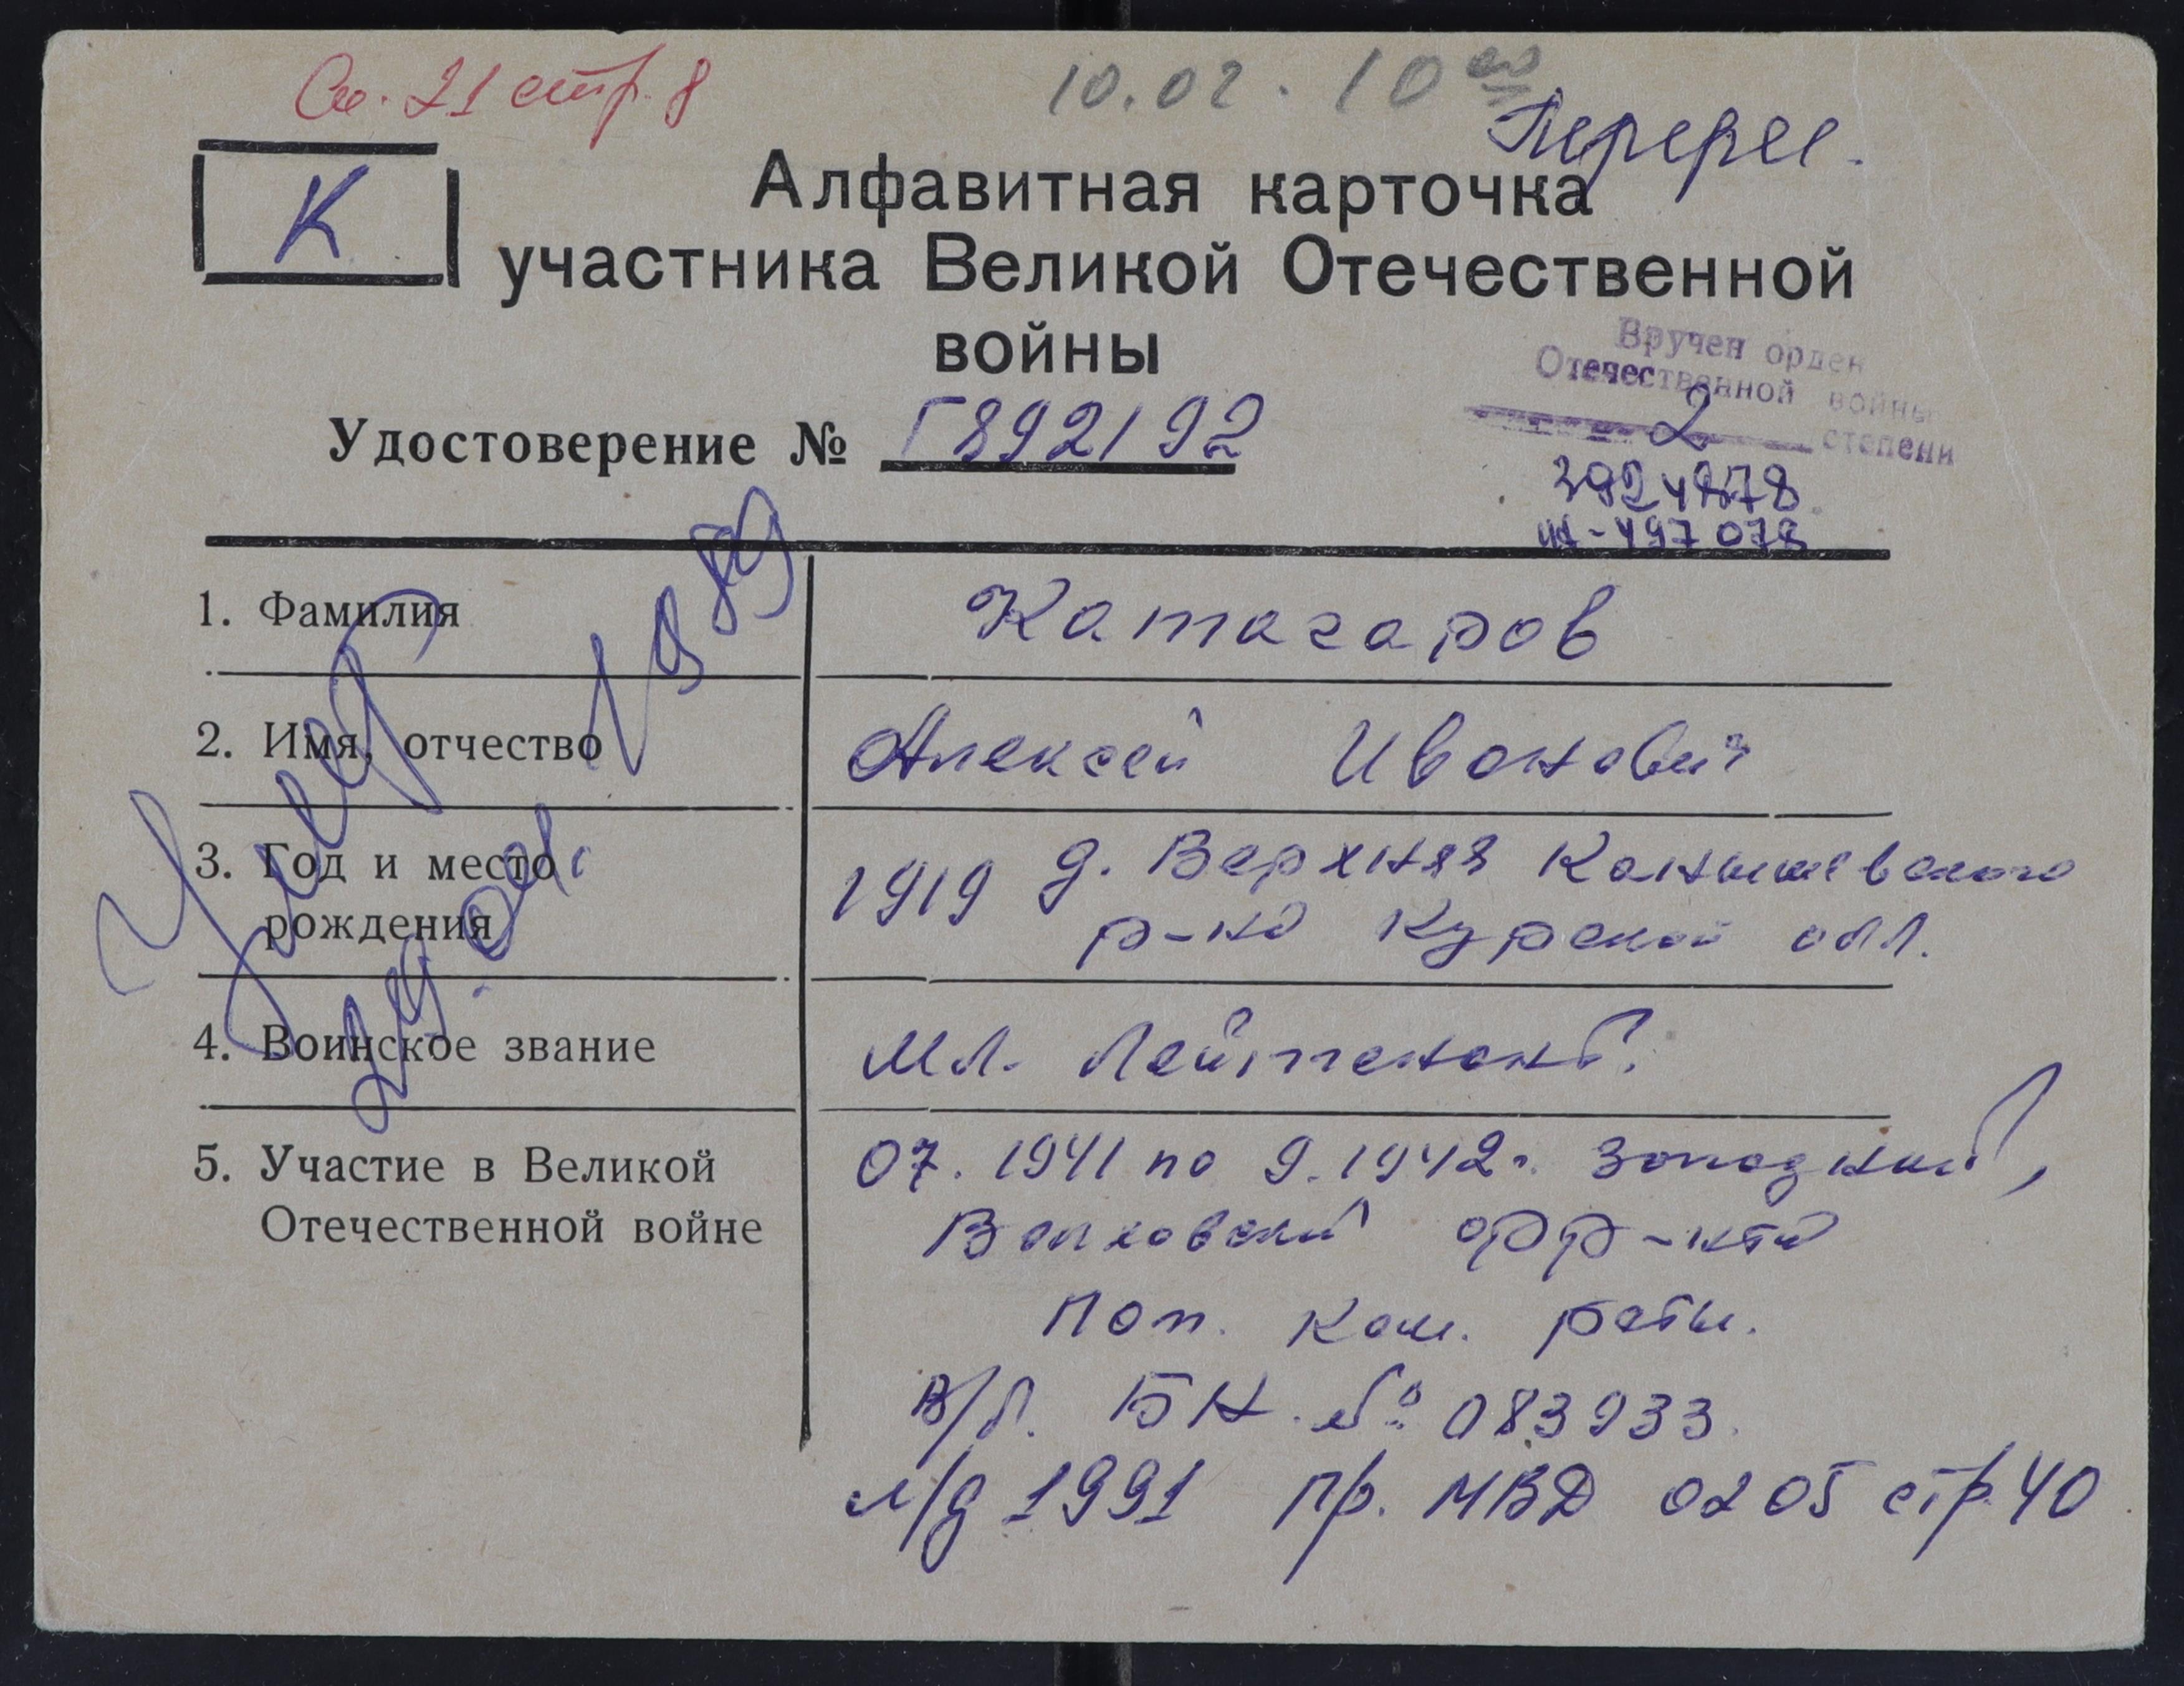 Сп. 21 стр. 8
10.02. 10 00
Перерег.
К
Алфавитная карточка
участника Великой Отечественной
войны
Вручен орден
Отечественной войны
2 степени
Удостоверение № Г892192
3924878
497078
1. Фамилия Катагаров
2. Имя, отчество Алексей Иванович
3. Год и место
рождения
1919 д. Верхняя Конышевского
р-на Курской обл.
4. Воинское звание мл. Лейтенант.
5. Участие в Великой
Отечественной войне
07. 1941 по 9. 1942г. Западный,
Волховский фр-нта
Пом. Ком. роты.
В/б. БН. № 083933.
л/д 1991 пр. МВД 0205 стр. 40
Умер 1989